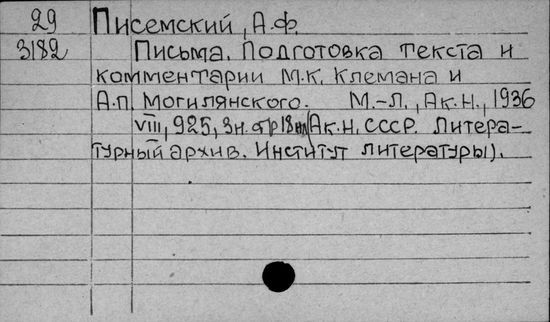 29 Писемский, А.Ф.
3182 Письма. Подготовка текста и
комментарии М.К. Клемана и
А.П. Могилянского. М.-Л., Ак.Н., 1936
VIII, 925, 3н. стр 18 илл (Ак.Н. СССР. Литера-
турный архив. Институт литературы).